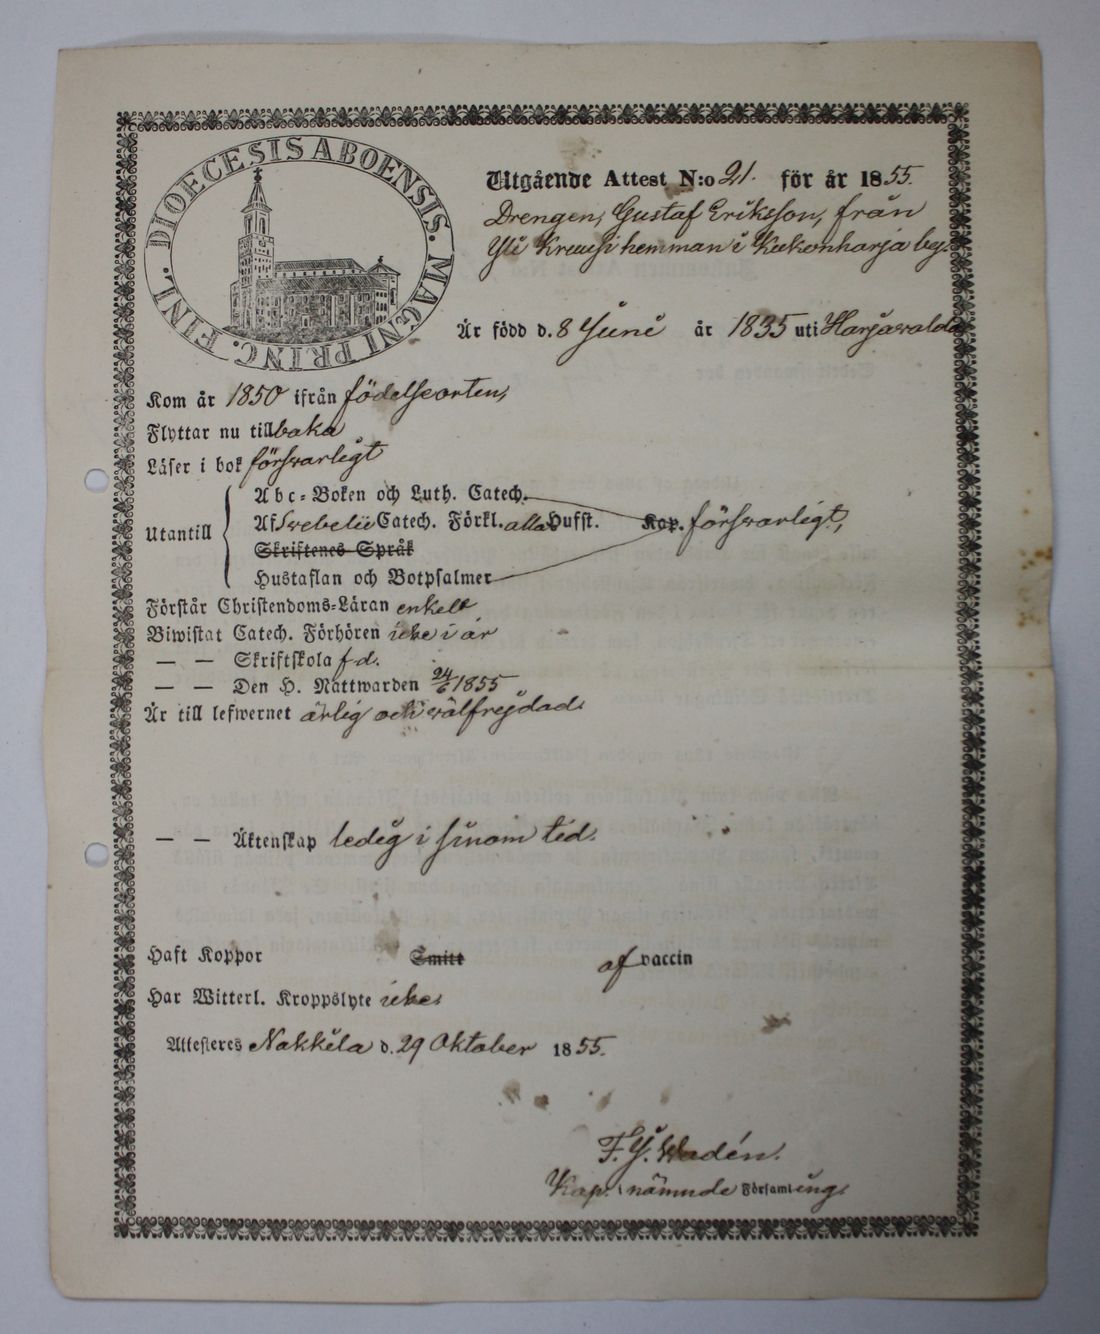 DIOECESIS ABOENSIS. MAGNI PRINC. FINL.
Utgående Attest N:o 21. för år 1855.
Drengen, Gustaf Eriksson, från
Yli Krausi hemman i Kukonharja by.
Är född d. 8 Juni år 1835 uti Harjawalda
Kom år 1850 ifrån födelseorten,
Flyttar nu tillbaka
Läser i bok förswarligt
Utantill
Abc-Boken och Luth. Catech.
Af Swebelii Catech. Förkl. alla Hufst. Kap. förswarligt,
Skriftenes Språk
Hustaflan och Botpsalmer
Förstår Christendoms-Läran enkelt
Biwistat Catech. Förhören icke i år
— — Skriftskola f d.
— — Den H. Nattwarden 24/6 1855
Är till lefwernet ärlig och wälfrejdad.
— — Äktenskap ledig i sinom tid.
Haft Koppor Smitt af vaccin
Har Witterl. Kroppslyte icke.
Attesteres Nakkila d. 29 Oktober 1855.
F. J. Wadén.
Kap. i nämnde Församling.